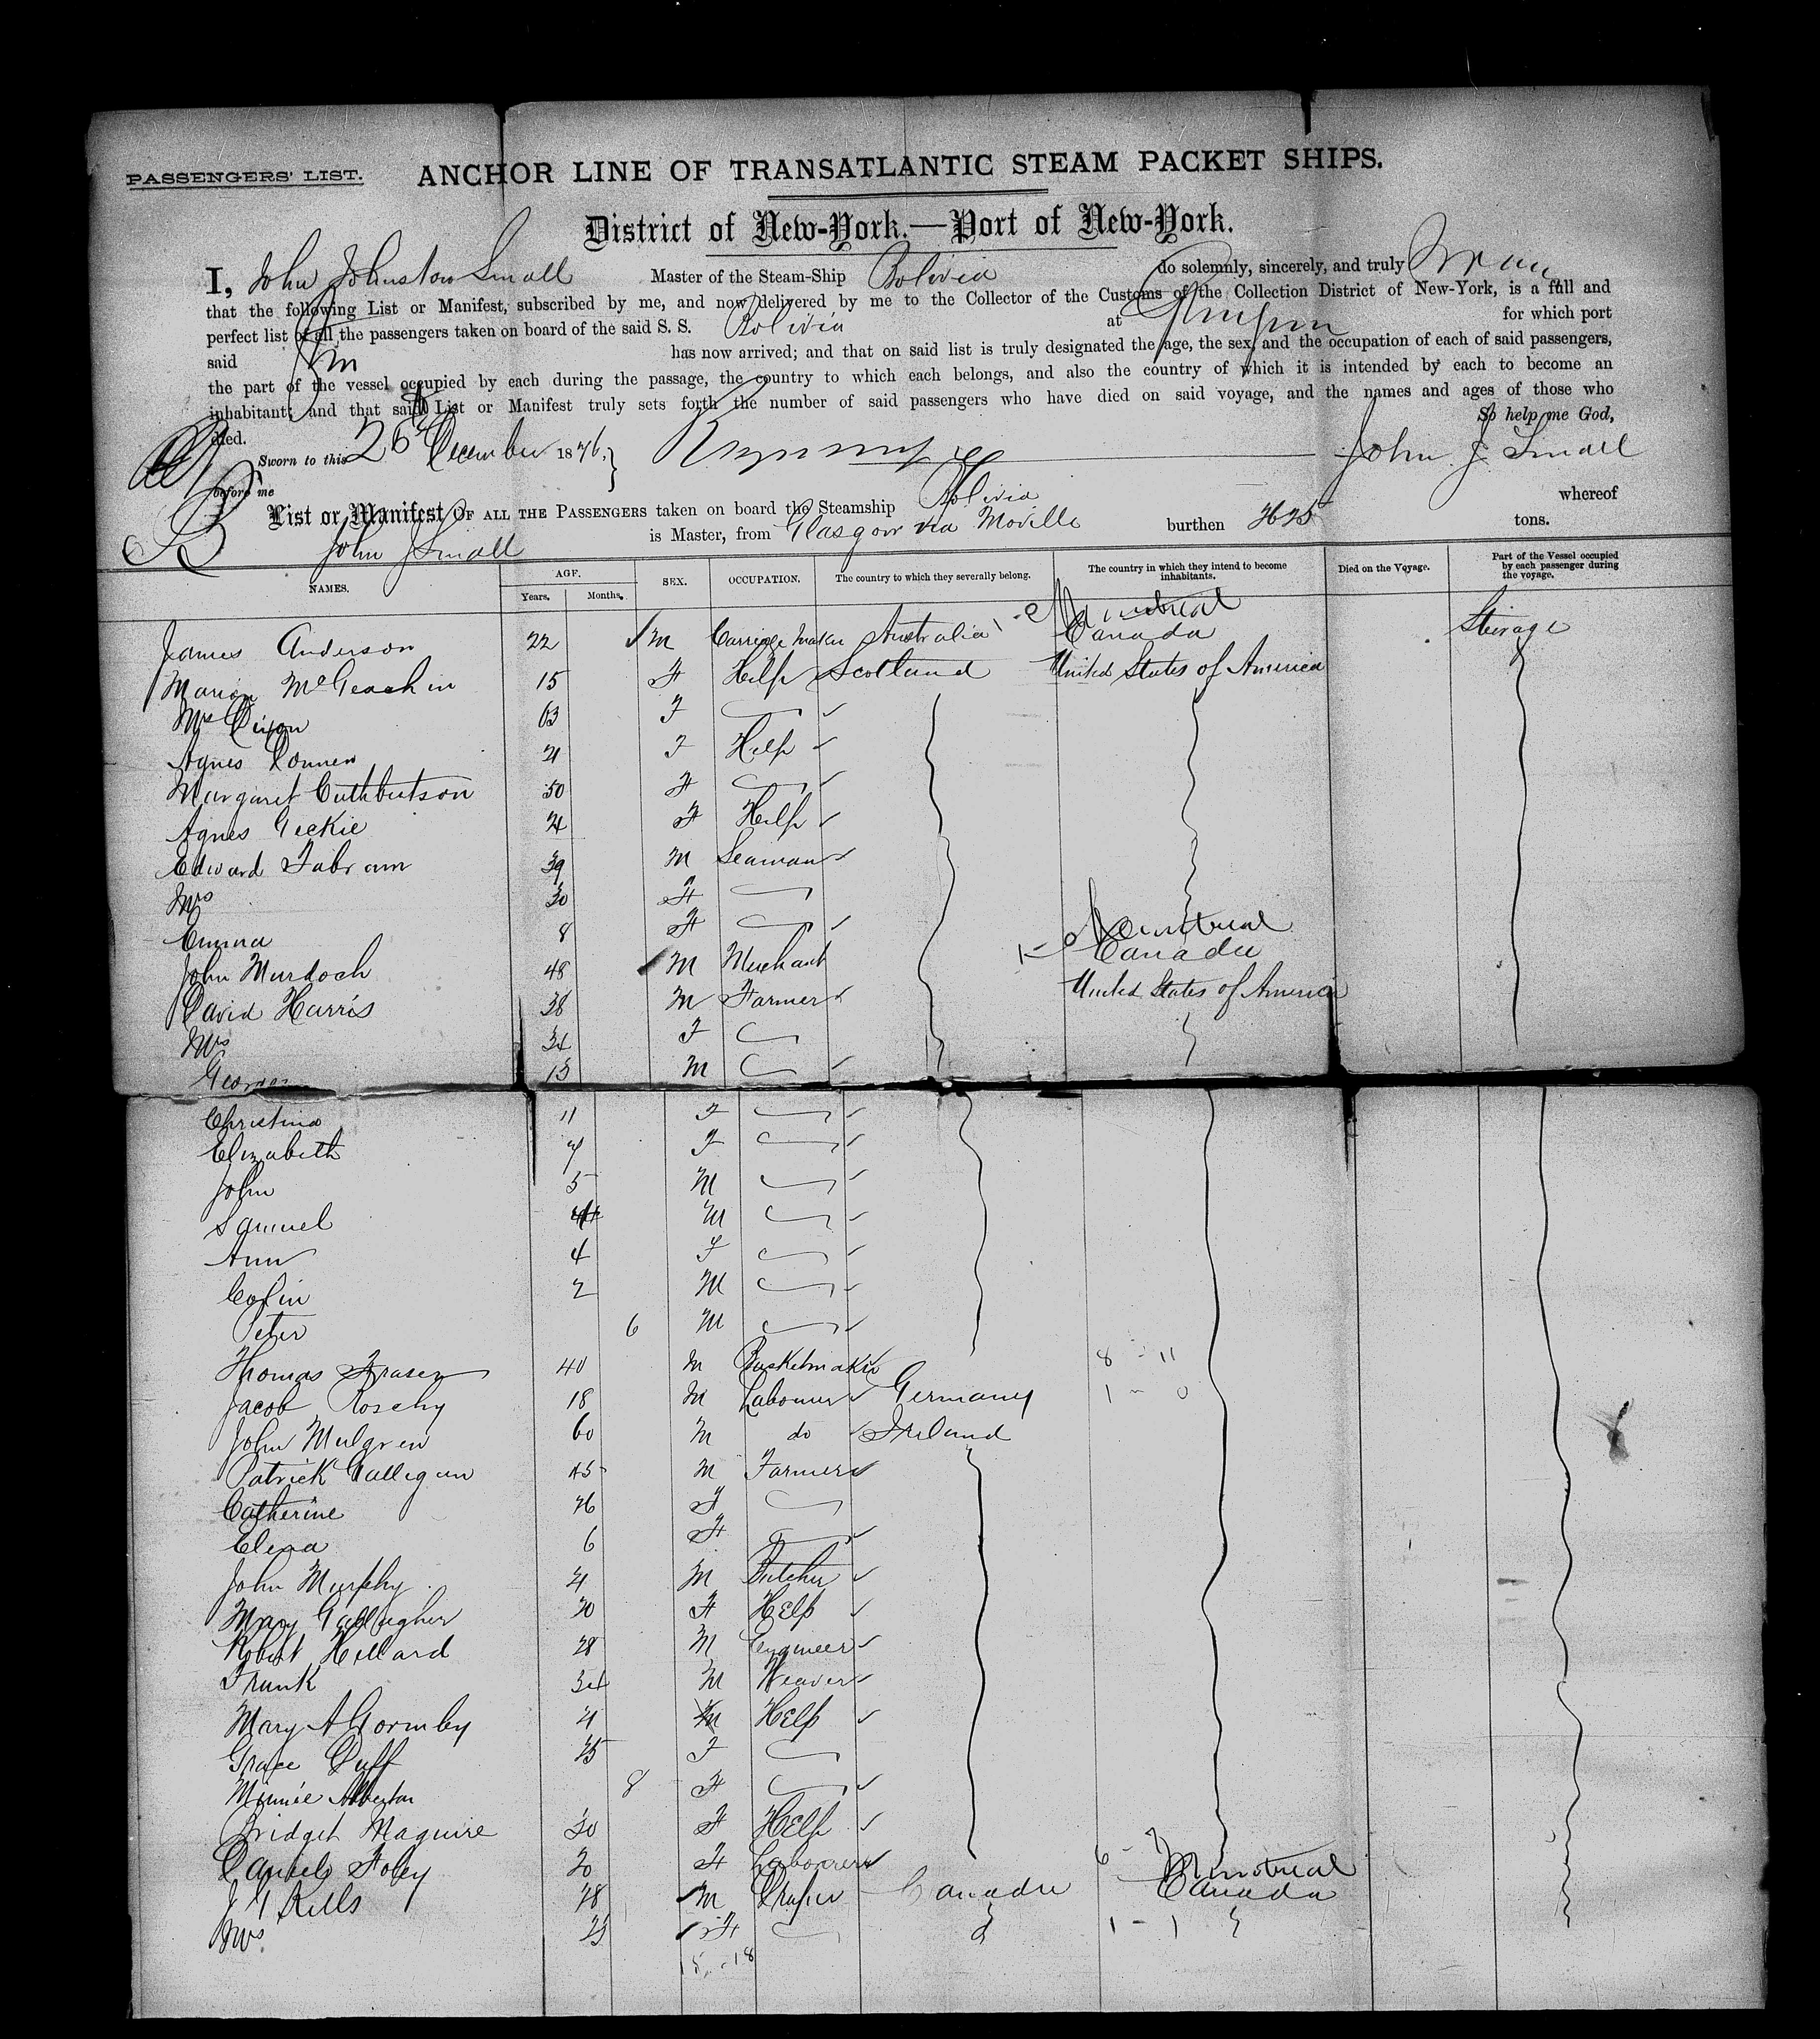 PASSENGERS' LIST.
ANCHOR LINE OF TRANSATLANTIC STEAM PACKET SHIPS.
District of New-York.—Port of New-York.
I, John Johnston Small Master of the Steam-Ship Bolivia do solemnly, sincerely, and truly
that the following List or Manifest, subscribed by me, and now delivered by me to the Collector of the Customs of the Collection District of New-York, is a full and
perfect list of all the passengers taken on board of the said S. S. Bolivia at for which port
said has now arrived; and that on said list is truly designated the age, the sex, and the occupation of each of said passengers,
the part of the vessel occupied by each during the passage, the country to which each belongs, and also the country of which it is intended by each to become an
inhabitant; and that said List or Manifest truly sets forth the number of said passengers who have died on said voyage, and the names and ages of those who
died. So help me God,
Sworn to this 26th December 1876, John J Small
before me
List or Manifest OF ALL THE PASSENGERS taken on board the Steamship Bolivia whereof
John J Small is Master, from Glasgow via Moville burthen 2625 tons.
NAMES. AGE. Years. Months. SEX. OCCUPATION. The country to which they severally belong. The country in which they intend to become inhabitants. Died on the Voyage. Part of the Vessel occupied by each passenger during the voyage.
James Anderson 22 M Carriage Maker Australia 1 - Montreal Canada Steirage
Marion McGeachin 15 F Help Scotland United States of America
Mrs Dixon 63 F
Agnes Conner 21 F Help
Margaret Cuthbertson 50 F
Agnes Geekie 21 F Help
Edward Fabram 39 M Seaman
Mrs 30 F
Emma 8 F
John Murdoch 48 M Merchant 1 - Montreal Canada
David Harris 38 M Farmer United States of America
Mrs 34 F
George 13 M
Christina 11 F
Elizabeth 7 F
John 5 M
Samuel M
Ann 4 F
Colin 2 M
Peter 6 M
Thomas Fraser 40 M Basketmaker 8 - 11
Jacob Roschy 18 M Labourer Germany 1 - 0
John Mulgrew 60 M do Ireland
Patrick Galligan 45 M Farmer
Catherine 26 F
Eliza 6 F
John Murphy 21 M Butcher
Mary Gallagher 20 F Help
Robert Hillard 28 M Engineer
Frank 34 M Weaver
Mary A Gormley 21 F Help
Grace Duff 25 F
Minnie 8 F
Bridget Maguire 20 F Help
Daniel Foley 20 F Labourer 6 - 7
J G Kells 28 M Draper Canada Montreal Canada
Mrs 23 F 1 - 1
18 - 18